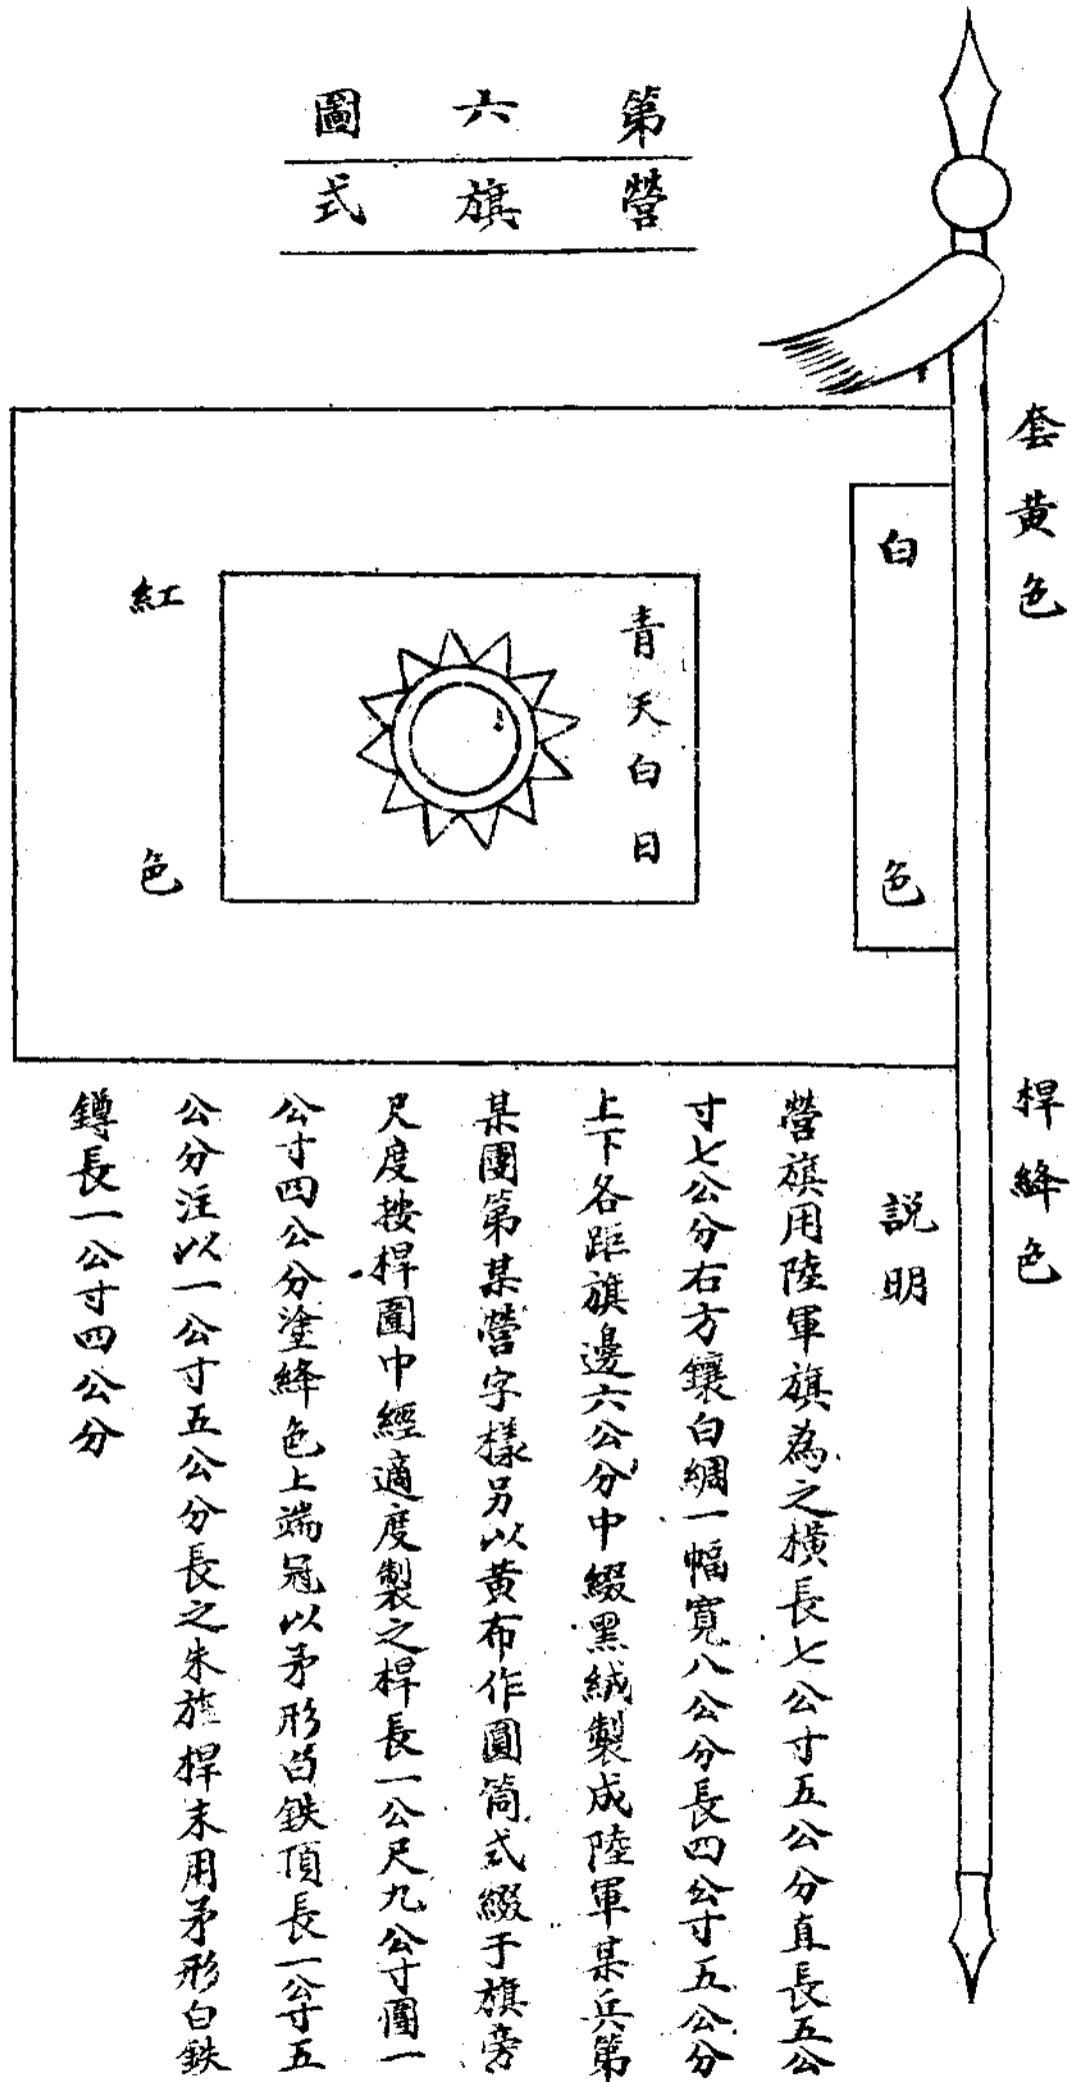 第六圖
營旗式
套黃色
桿絳色
白色
青天白日
紅色
説明
營旗用陸軍旗為之橫長七公寸五公分直長五公
寸七公分右方鑲白綢一幅寬八公分長四公寸五公分
上下各距旗邊六公分中綴黑絨製成陸軍某兵第
某團第某營字樣另以黃布作圓筒式綴于旗旁
尺度按桿圍中經適度製之桿長一公尺九公寸圍一
公寸四公分塗絳色上端冠以矛形白鉄頂長一公寸五
公分注以一公寸五公分長之朱旄桿末用矛形白鉄
鐏長一公寸四公分